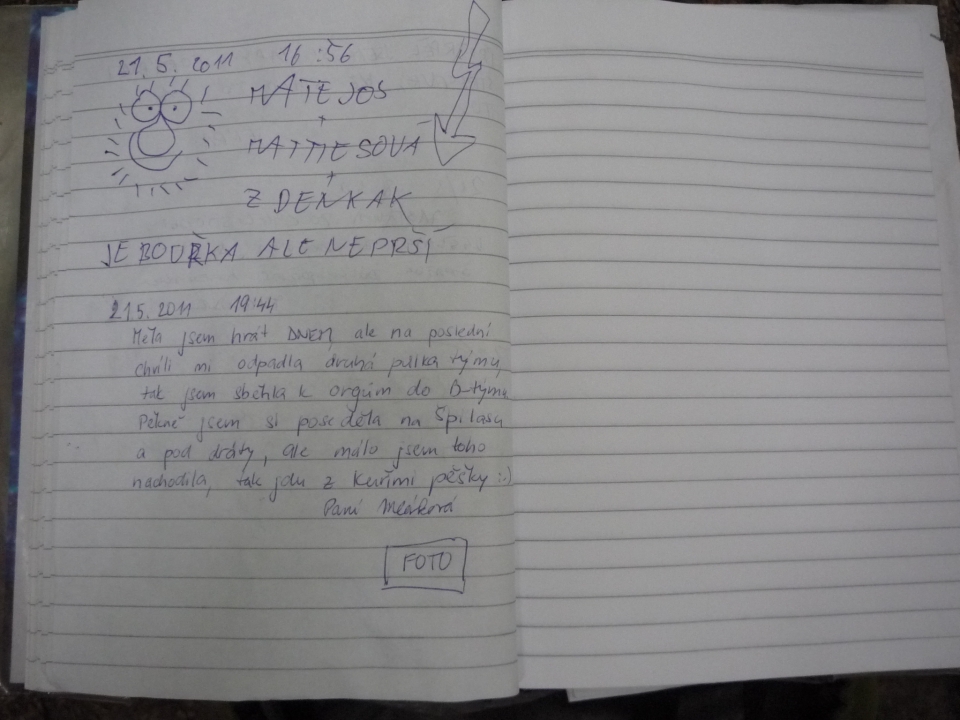 21.5.2011 16:56
MATEJOŠ
+
MATTIESOVÁ
+
ZDEŇKAK
JE BOUŘKA ALE NEPRŠÍ
21.5.2011 19:44
Měla jsem hrát DNEM, ale na poslední
chvíli mi odpadla druhá půlka týmu,
tak jsem sběhla k orgům do B-týmu
Pěkně jsem si poseděla na Špilasu
a pod dráty, ale málo jsem toho
nachodila, tak jdu z Kuřimi pěšky :-)
Paní
FOTO